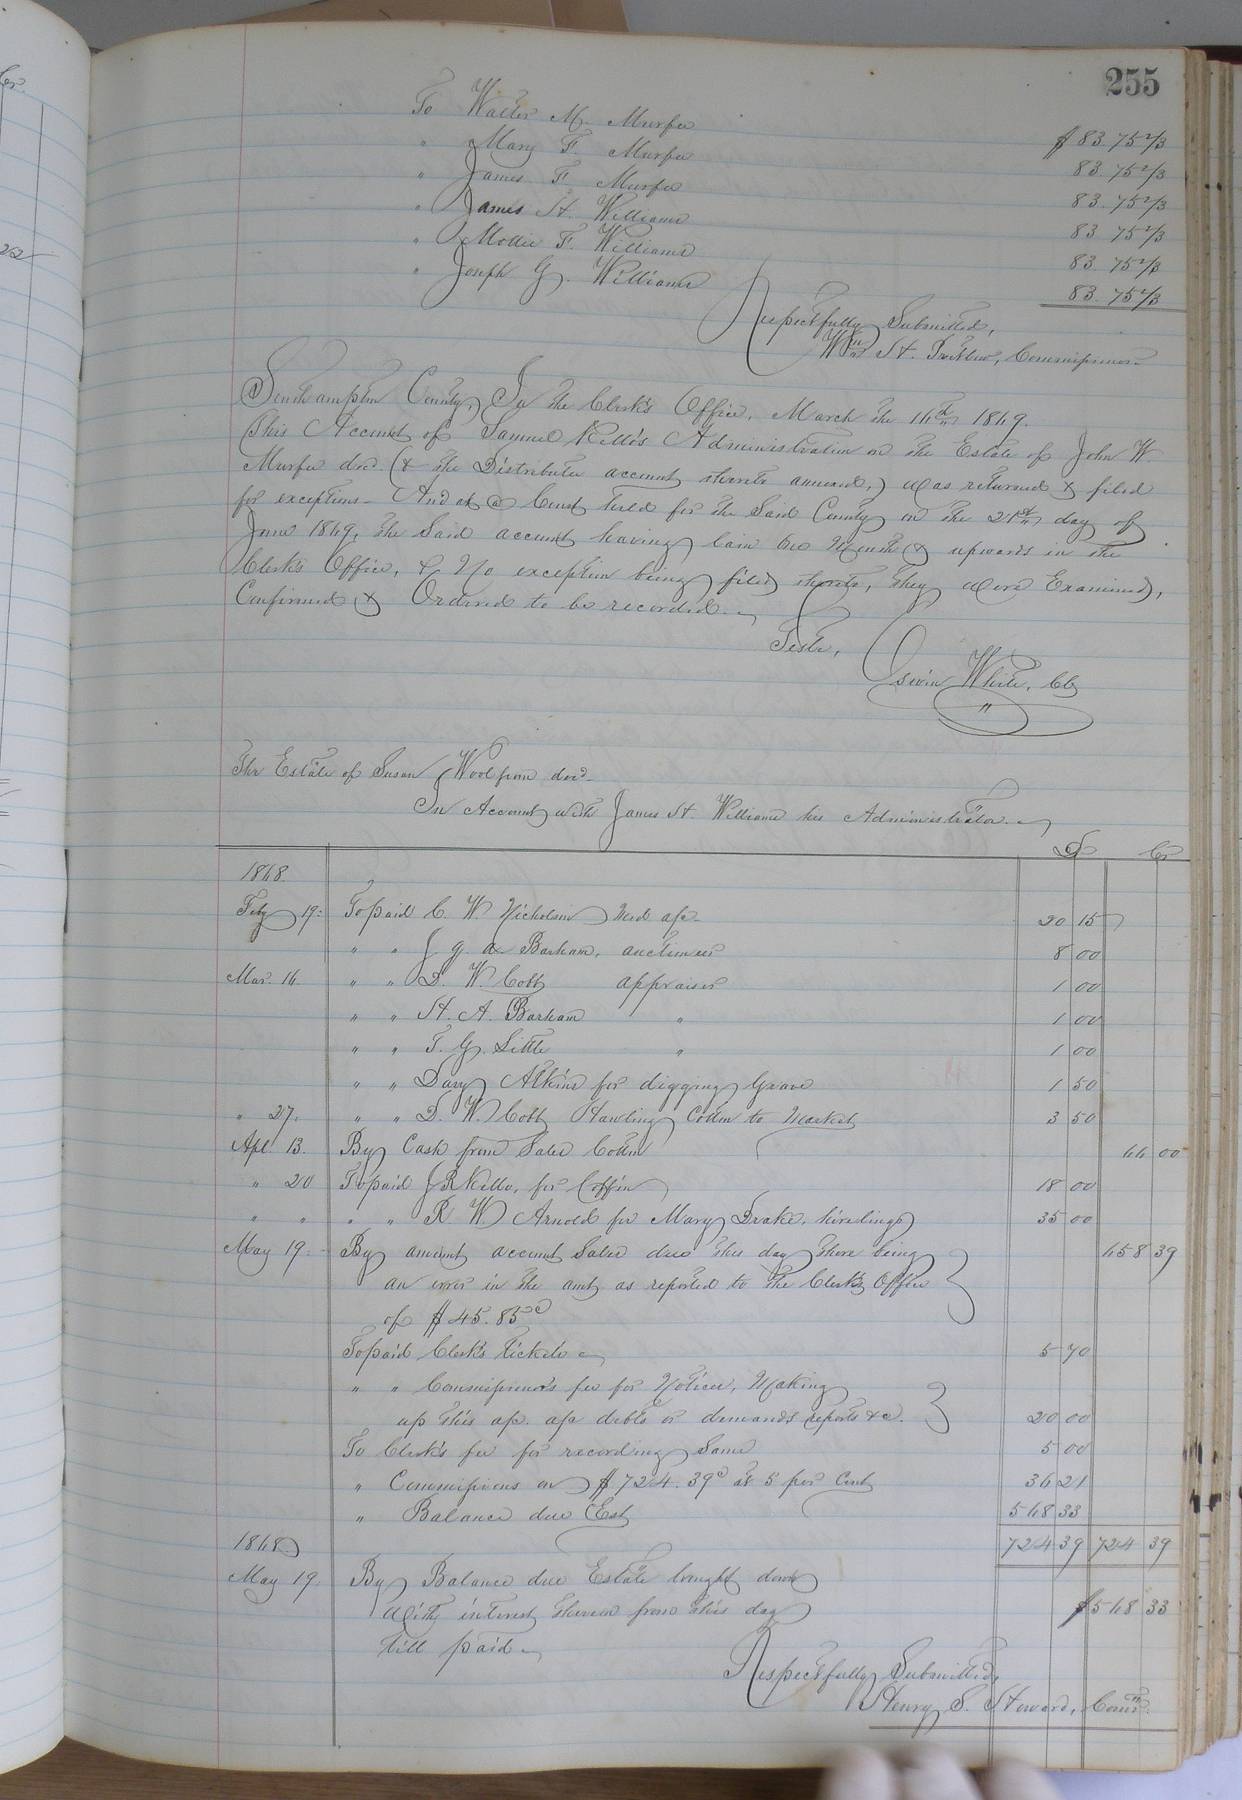 255
To Walter M. Murfee $83.75 2/3
" Mary F. Murfee 83.75 2/3
" James F. Murfee 83.75 2/3
" James H. Williams 83 75 2/3
" Mollie F. Williams 83. 75 2/3
" Joseph G. Williams 83. 75 2/3
Respectfully Submitted,
Wm H. Commissioner
Southampton County, In the Clerk's Office, March the 16th 1869.
This Account of Samuel Kello's Administration on the Estate of John W.
Murfee decd. (& the Distributee account thereto annexed,) was returned & filed
for exceptions - And at a Court held for the Said County on the 21st day of
June 1869, the Said account having lain two Months & upwards in the
Clerk's Office, & No exception being filed thereto, they were Examined,
Confirmed & Ordered to be recorded.
Teste,
White, Clk
The Estate of Susan Woolfrom decd
In Account with James H. Williams her Administrator
Dr Cr
1868.
Feby 19. To paid C. W. Nicholson Med a/c 20 15
" " J. G. A. Barham, auctioneer 8 00
Mar. 16. " " D. W. Cobb appraiser 1 00
" " H. A. Barham " 1 00
" " T. G. Little " 1 00
" " Davy Atkins for digging Grave 1 50
" 27. " " D. W. Cobb Hawling Cotton to Market 3 50
Apl 13. By Cash from Sales Cotton 66 00
" 20 To paid J R Kello, for Coffin 18 00
" " " " R W Arnold for Mary Drake, hirelings 35 00
May 19. By amount account Sales due this day there being 658 39
an error in the amt as reported to the Clerk's Office
of $45.85c
To paid Clerk's tickets 5 70
" " Commissioner's fee for Notices, Making
up this a/c. a/c debts or demands reports &c. 20 00
To Clerk's fee for recording Same 5 00
" Commissions on $724.39c at 5 per Cent 36 21
" Balance due Est 568 33
1868 724 39 724 39
May 19. By Balance due Estate brought down
with interest thereon from this day $568 33
till paid
Respectfully Submitted,
Henry S. Howard, Comr.